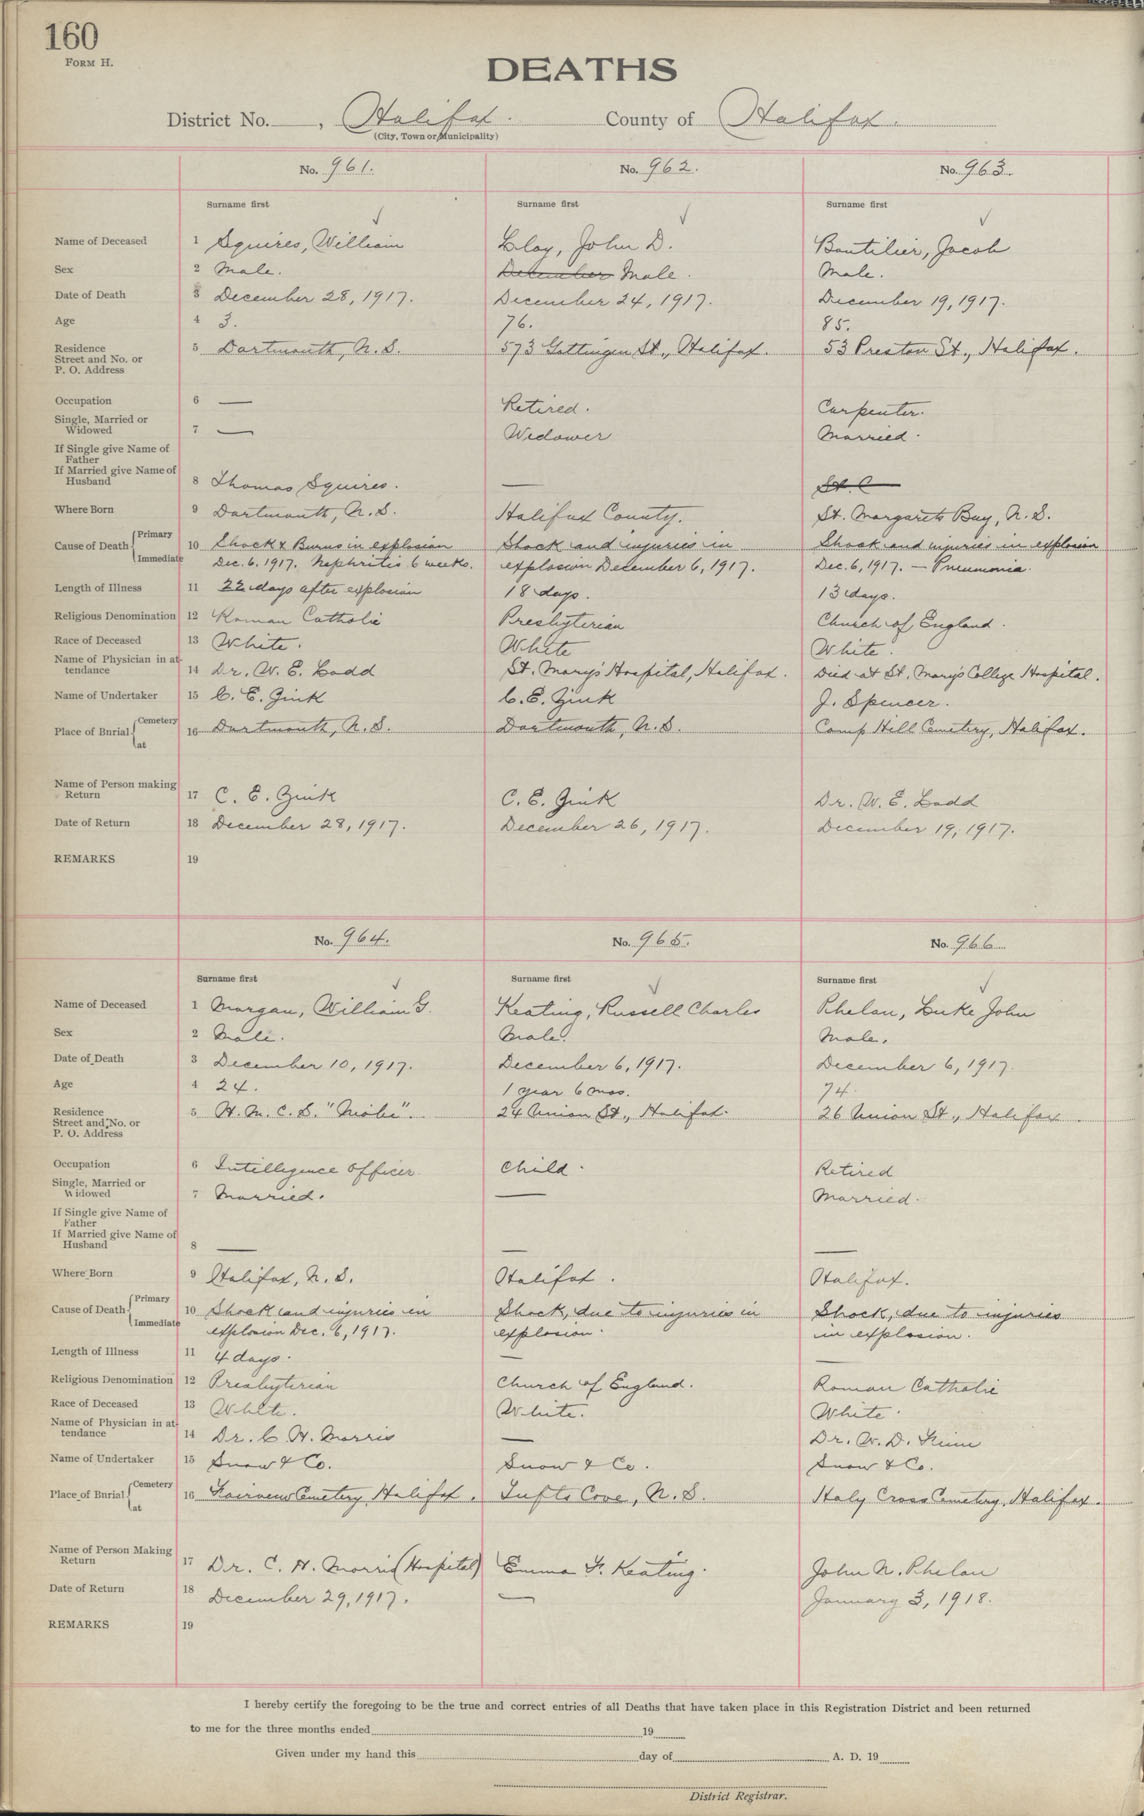 160
FORM H.
DEATHS
District No. , Halifax. County of Halifax.
(City, Town or Municipality)
No. 961. No. 962. No. 963.
Surname first Surname first Surname first
Name of Deceased 1 Squires, William Cloy, John D. Boutilier, Jacob
Sex 2 Male. December Male. Male.
Date of Death 3 December 28, 1917. December 24, 1917. December 19, 1917.
Age 4 3. 76. 85.
Residence 5 Dartmouth, N.S. 573 Gottingen St., Halifax. 53 Preston St., Halifax.
Street and No. or
P. O. Address
Occupation 6 — Retired. Carpenter.
Single, Married or
Widowed 7 — Widower Married.
If Single give Name of
Father
If Married give Name of
Husband 8 Thomas Squires. — St. C
Where Born 9 Dartmouth, N.S. Halifax County. St. Margarets Bay, N.S.
Cause of Death Primary 10 Shock & Burns in explosion Shock and injuries in Shock and injuries in explosion
Immediate Dec. 6. 1917. Nephritis 6 weeks. explosion December 6, 1917. Dec. 6, 1917. — Pneumonia.
Length of Illness 11 22 days after explosion 18 days. 13 days.
Religious Denomination 12 Roman Catholic Presbyterian Church of England.
Race of Deceased 13 White. White White.
Name of Physician in at-
tendance 14 Dr. W. E. Ladd St. Mary's Hospital, Halifax. Died at St. Mary's College Hospital.
Name of Undertaker 15 C. E. Zink C. E. Zink J. Spencer.
Place of Burial Cemetery at 16 Dartmouth, N.S. Dartmouth, N.S. Camp Hill Cemetery, Halifax.
Name of Person making
Return 17 C. E. Zink C. E. Zink Dr. W. E. Ladd
Date of Return 18 December 28, 1917. December 26, 1917. December 19, 1917.
REMARKS 19
No. 964. No. 965. No. 966
Surname first Surname first Surname first
Name of Deceased 1 Morgan, William G. Keating, Russell Charles Phelan, Luke John
Sex 2 Male. Male. Male.
Date of Death 3 December 10, 1917. December 6, 1917. December 6, 1917
Age 4 24. 1 year 6 mos. 74
Residence 5 H. M. C. S. "Niobe". 24 Union St., Halifax. 26 Union St., Halifax.
Street and No. or
P. O. Address
Occupation 6 Intelligence Officer Child. Retired
Single, Married or
Widowed 7 Married. — Married.
If Single give Name of
Father
If Married give Name of
Husband 8 — — —
Where Born 9 Halifax, N.S. Halifax. Halifax.
Cause of Death Primary 10 Shock and injuries in Shock, due to injuries in Shock, due to injuries
Immediate explosion Dec. 6, 1917. explosion. in explosion.
Length of Illness 11 4 days. — —
Religious Denomination 12 Presbyterian Church of England. Roman Catholic
Race of Deceased 13 White. White. White.
Name of Physician in at-
tendance 14 Dr. C. H. Morris — Dr. W. D. Finn
Name of Undertaker 15 Snow & Co. Snow & Co. Snow & Co.
Place of Burial Cemetery at 16 Fairview Cemetery, Halifax. Tufts Cove, N.S. Holy Cross Cemetery, Halifax.
Name of Person Making
Return 17 Dr. C. H. Morris (Hospital) Emma F. Keating. John N. Phelan
Date of Return 18 December 29, 1917. — January 3, 1918.
REMARKS 19
I hereby certify the foregoing to be the true and correct entries of all Deaths that have taken place in this Registration District and been returned
to me for the three months ended 19
Given under my hand this day of A. D. 19
District Registrar.